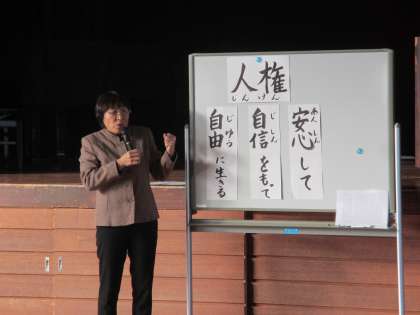 人権
じんけん
安心して
あんしん
自信をもって
じしん
自由に生きる
じゆう